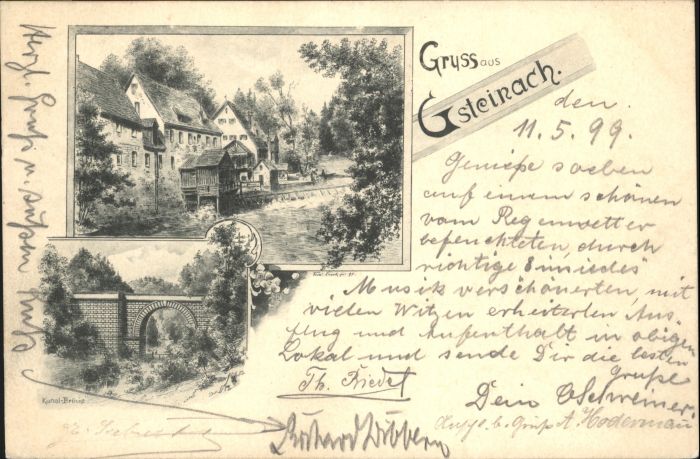 Gruss aus
Gsteinach.
den
11.5.99.
Genieße soeben
auf einem schönen
vom Regenwetter
befeuchteten, durch
richtige
Musik verschönerten, mit
vielen Witz en erheiterten Aus-
flug und Aufenthalt in obigen
Lokal und sende Dir die besten
Grüße
Th. Friedel
Dein
Gruß A.
Richard
Herzl. Gruß u.
Kanal-Brücke